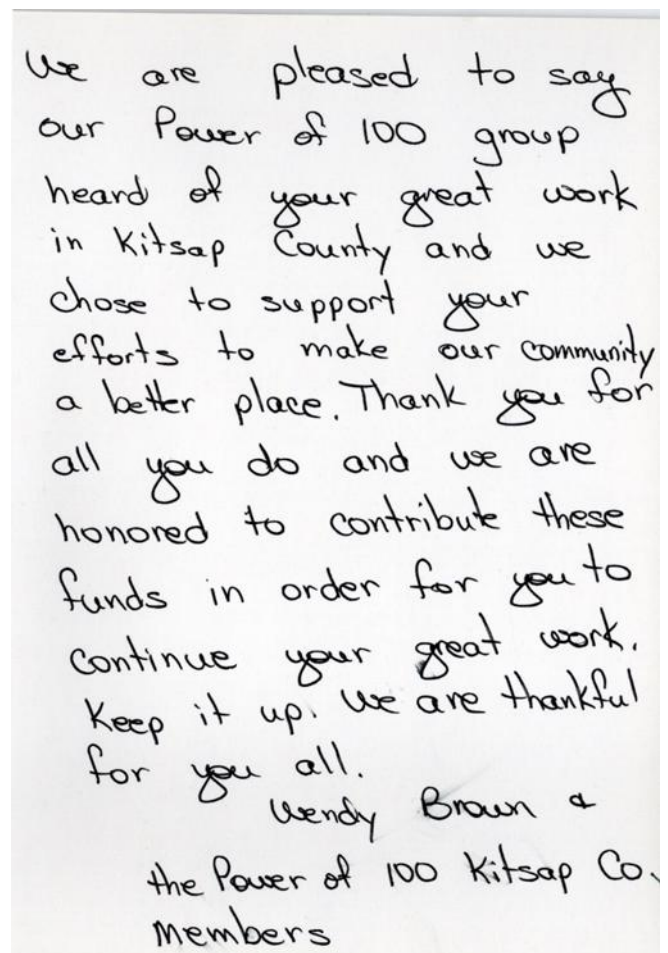 We are pleased to say
our Power of 100 group
heard of your great work
in Kitsap County and we
chose to support your
efforts to make our community
a better place. Thank you for
all you do and we are
honored to contribute these
funds in order for you to
continue your great work.
Keep it up. We are thankful
for you all.
Wendy Brown &
the Power of 100 Kitsap Co.
members